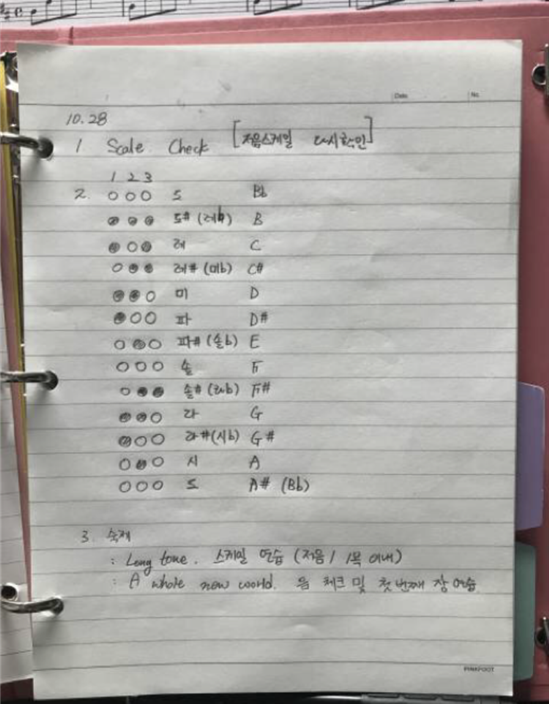 Date No.
10.28
1 Scale Check [저음스케일 다시확인]
1 2 3
2. ○○○ 도 Bb
●●● 도# (레b) B
●○● 레 C
○●● 레# (미b) C#
●●○ 미 D
●○○ 파 D#
○●○ 파# (솔b) E
○○○ 솔 F
○●● 솔# (라b) F#
●●○ 라 G
●○○ 라# (시b) G#
○●○ 시 A
○○○ 도 A# (Bb)
3. 숙제
: Long tone. 스케일 연습 (저음 / 1옥 이내)
: A whole new world. 음 체크 및 첫 번째 장 연습
PINKFOOT